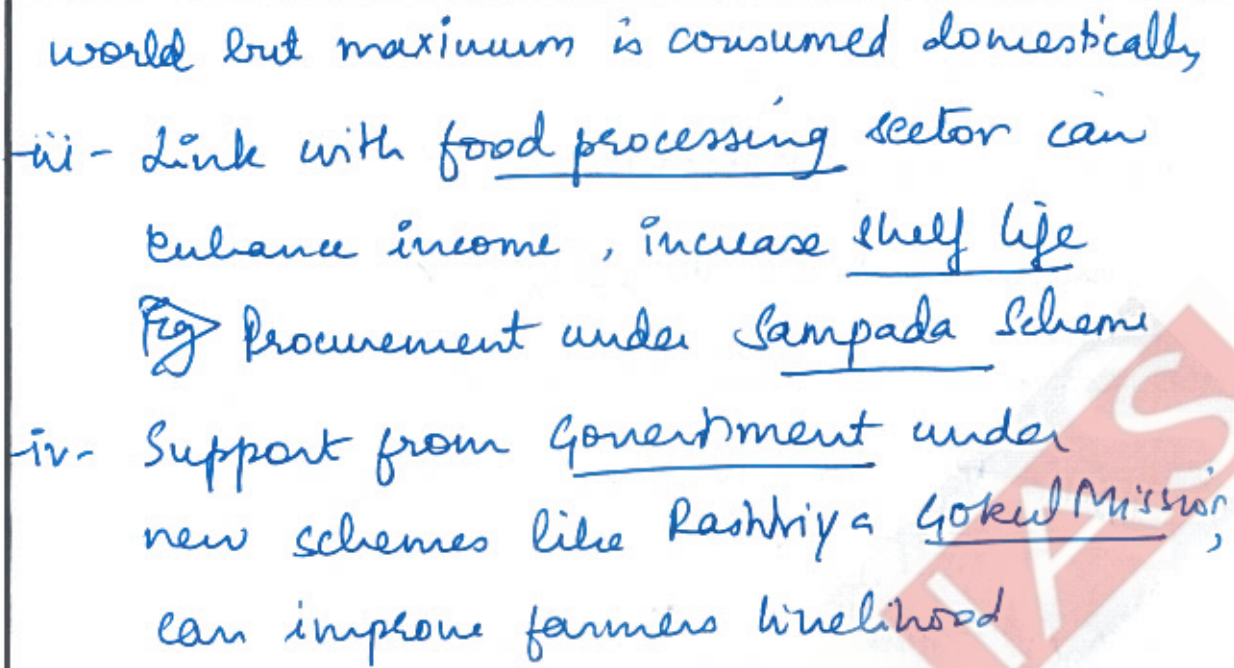 world but maximum is consumed domestically
iii- Link with food processing sector can
enhance income, increase shelf life
Eg Procurement under Sampada Scheme
iv- Support from Government under
new schemes like Rashtriya Gokul Mission,
can improve farmers livelihood
IAS